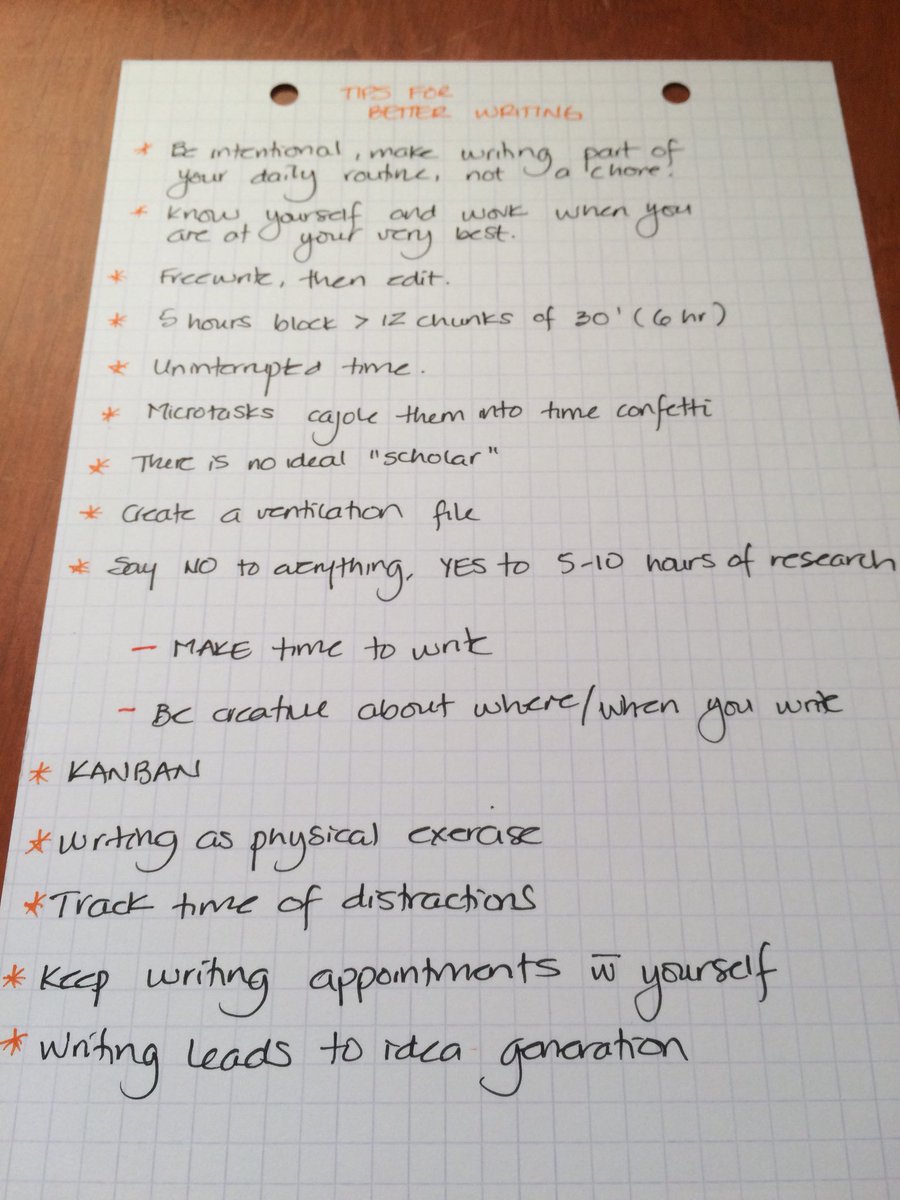 TIPS FOR
BETTER WRITING
* Be intentional, make writing part of
your daily routine, not a chore.
* Know yourself and work when you
are at your very best.
* Freewrite, then edit.
* 5 hours block > 12 chunks of 30' (6 hr)
* Uninterrupted time.
* Microtasks cajole them into time confetti
* There is no ideal "scholar"
* Create a ventilation file
* Say NO to everything, YES to 5-10 hours of research
- MAKE time to write
- Be creative about where/when you write
* KANBAN
* Writing as physical exercise
* Track time of distractions
* Keep writing appointments w̅ yourself
* Writing leads to idea generation